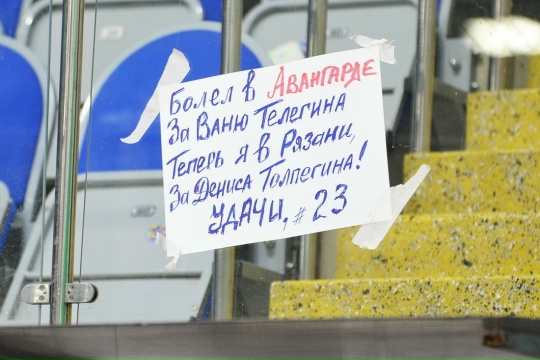 Болел в АВАНГАРДЕ
За Ваню Телегина
Теперь я в Рязани,
За Дениса Толпегина!
УДАЧИ, #23